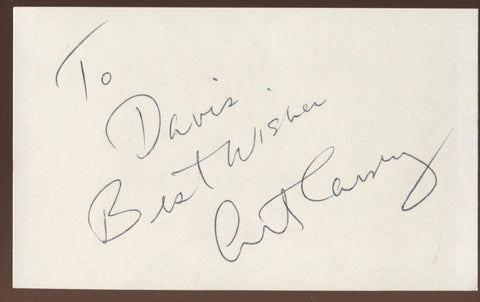 To
Davis
Best Wishes
Art Carney